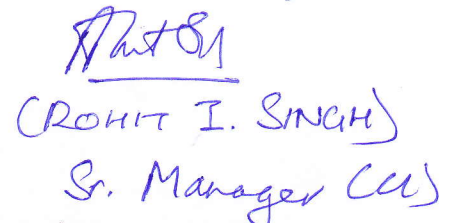 (ROHIT I. SINGH)
Sr. Manager